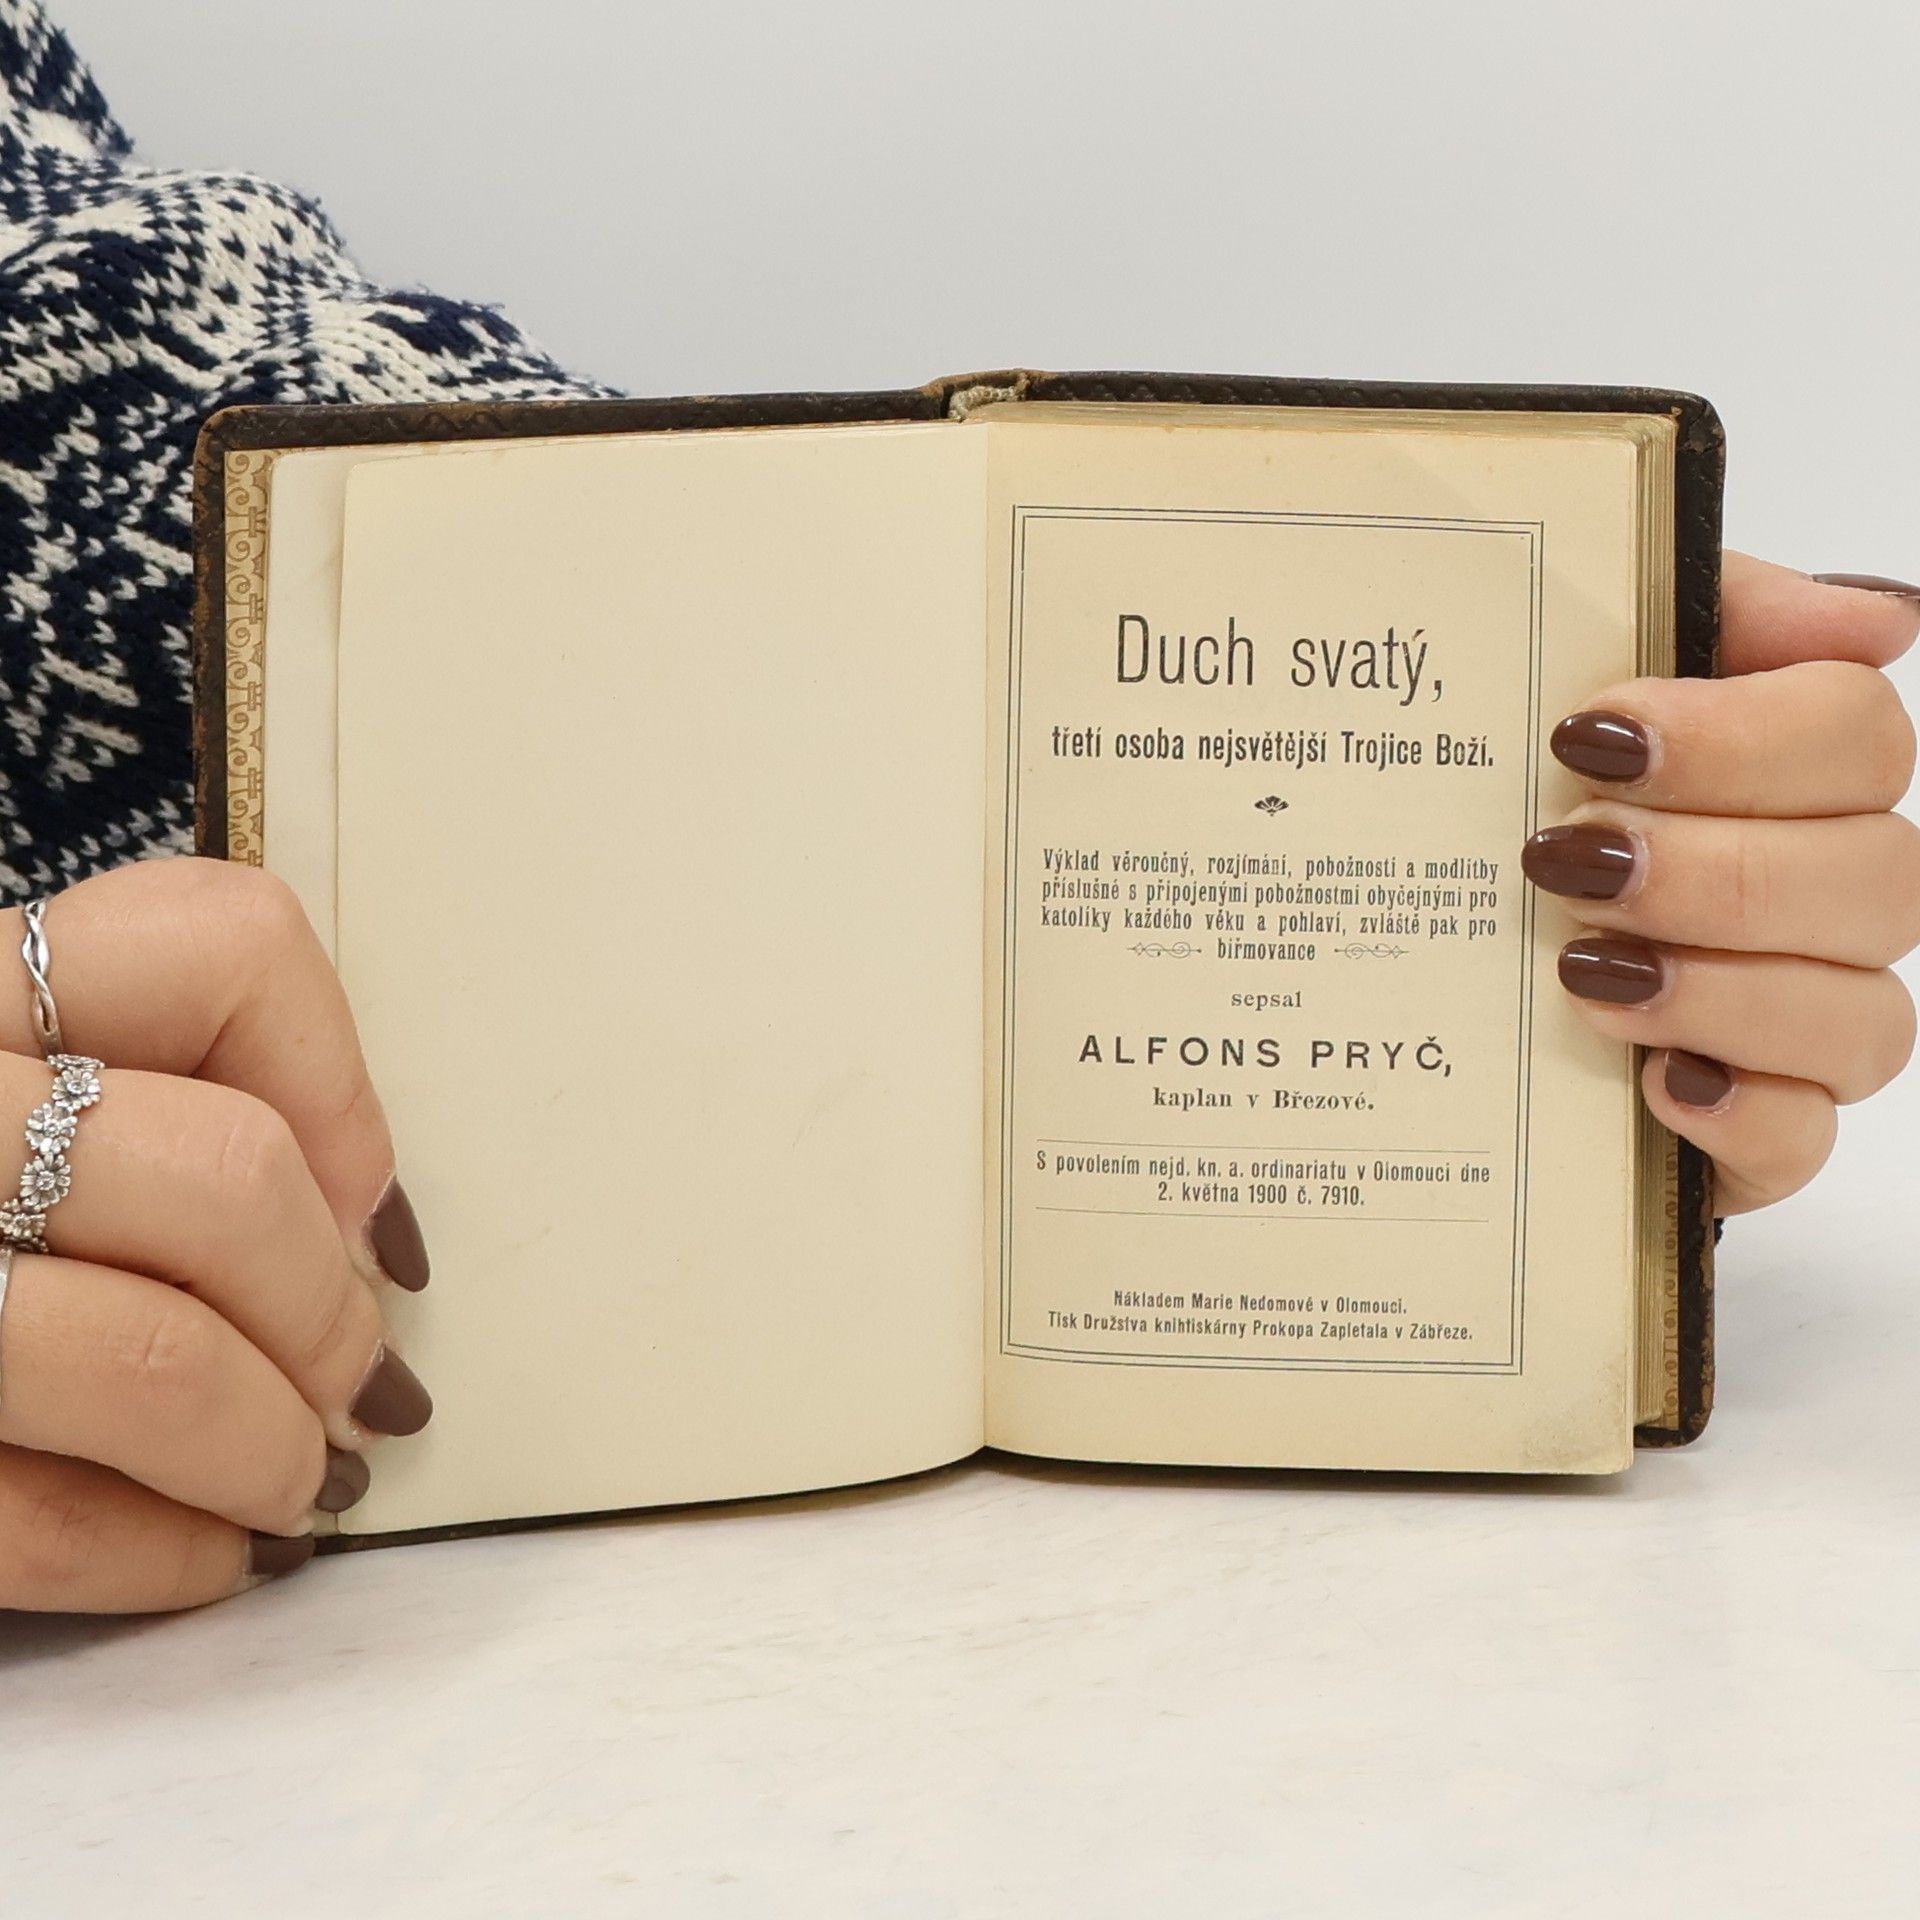 Duch svatý,
třetí osoba nejsvětější Trojice Boží.
Výklad věroučný, rozjímání, pobožnosti a modlitby
příslušné s připojenými pobožnostmi obyčejnými pro
katolíky každého věku a pohlaví, zvláště pak pro
biřmovance
sepsal
ALFONS PRYČ,
kaplan v Březové.
S povolením nejd. kn. a. ordinariatu v Olomouci dne
2. května 1900 č. 7910.
Nákladem Marie Nedomové v Olomouci.
Tisk Družstva knihtiskárny Prokopa Zapletala v Zábřeze.